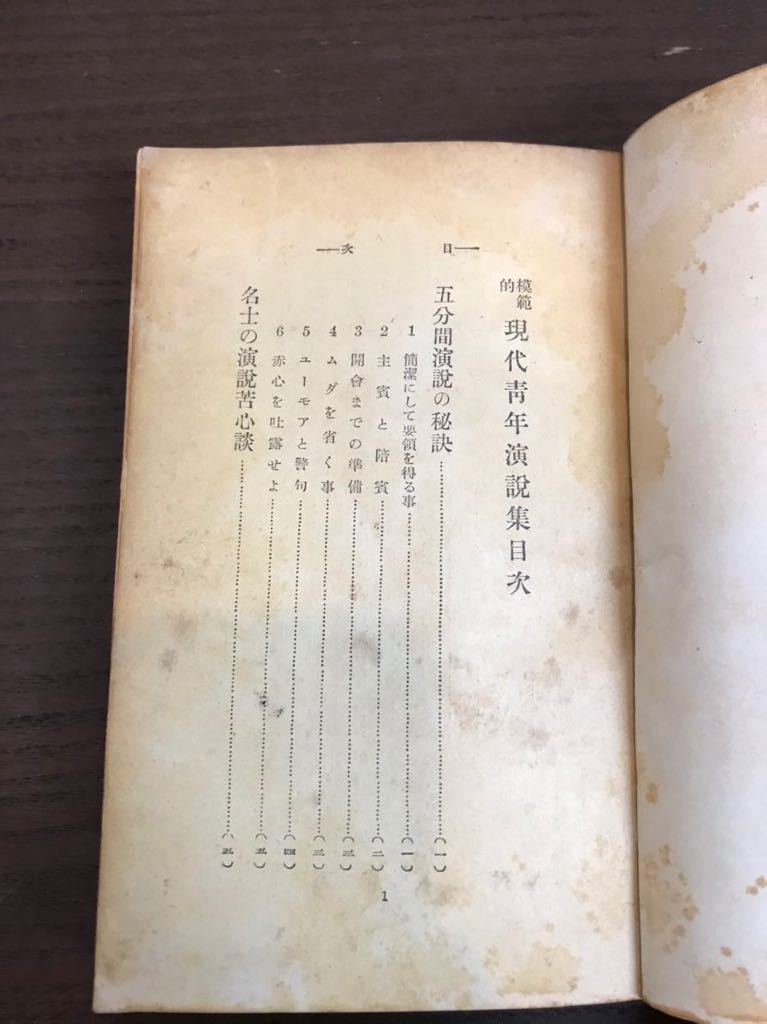 目次
模範的 現代青年演說集目次
五分間演說の秘訣……(一)
1 簡潔にして要領を得る事……(一)
2 主賓と陪賓……(二)
3 開會までの準備……(三)
4 ムダを省く事……(三)
5 ユーモアと警句……(四)
6 赤心を吐露せよ……(五)
名士の演說苦心談……(五)
1